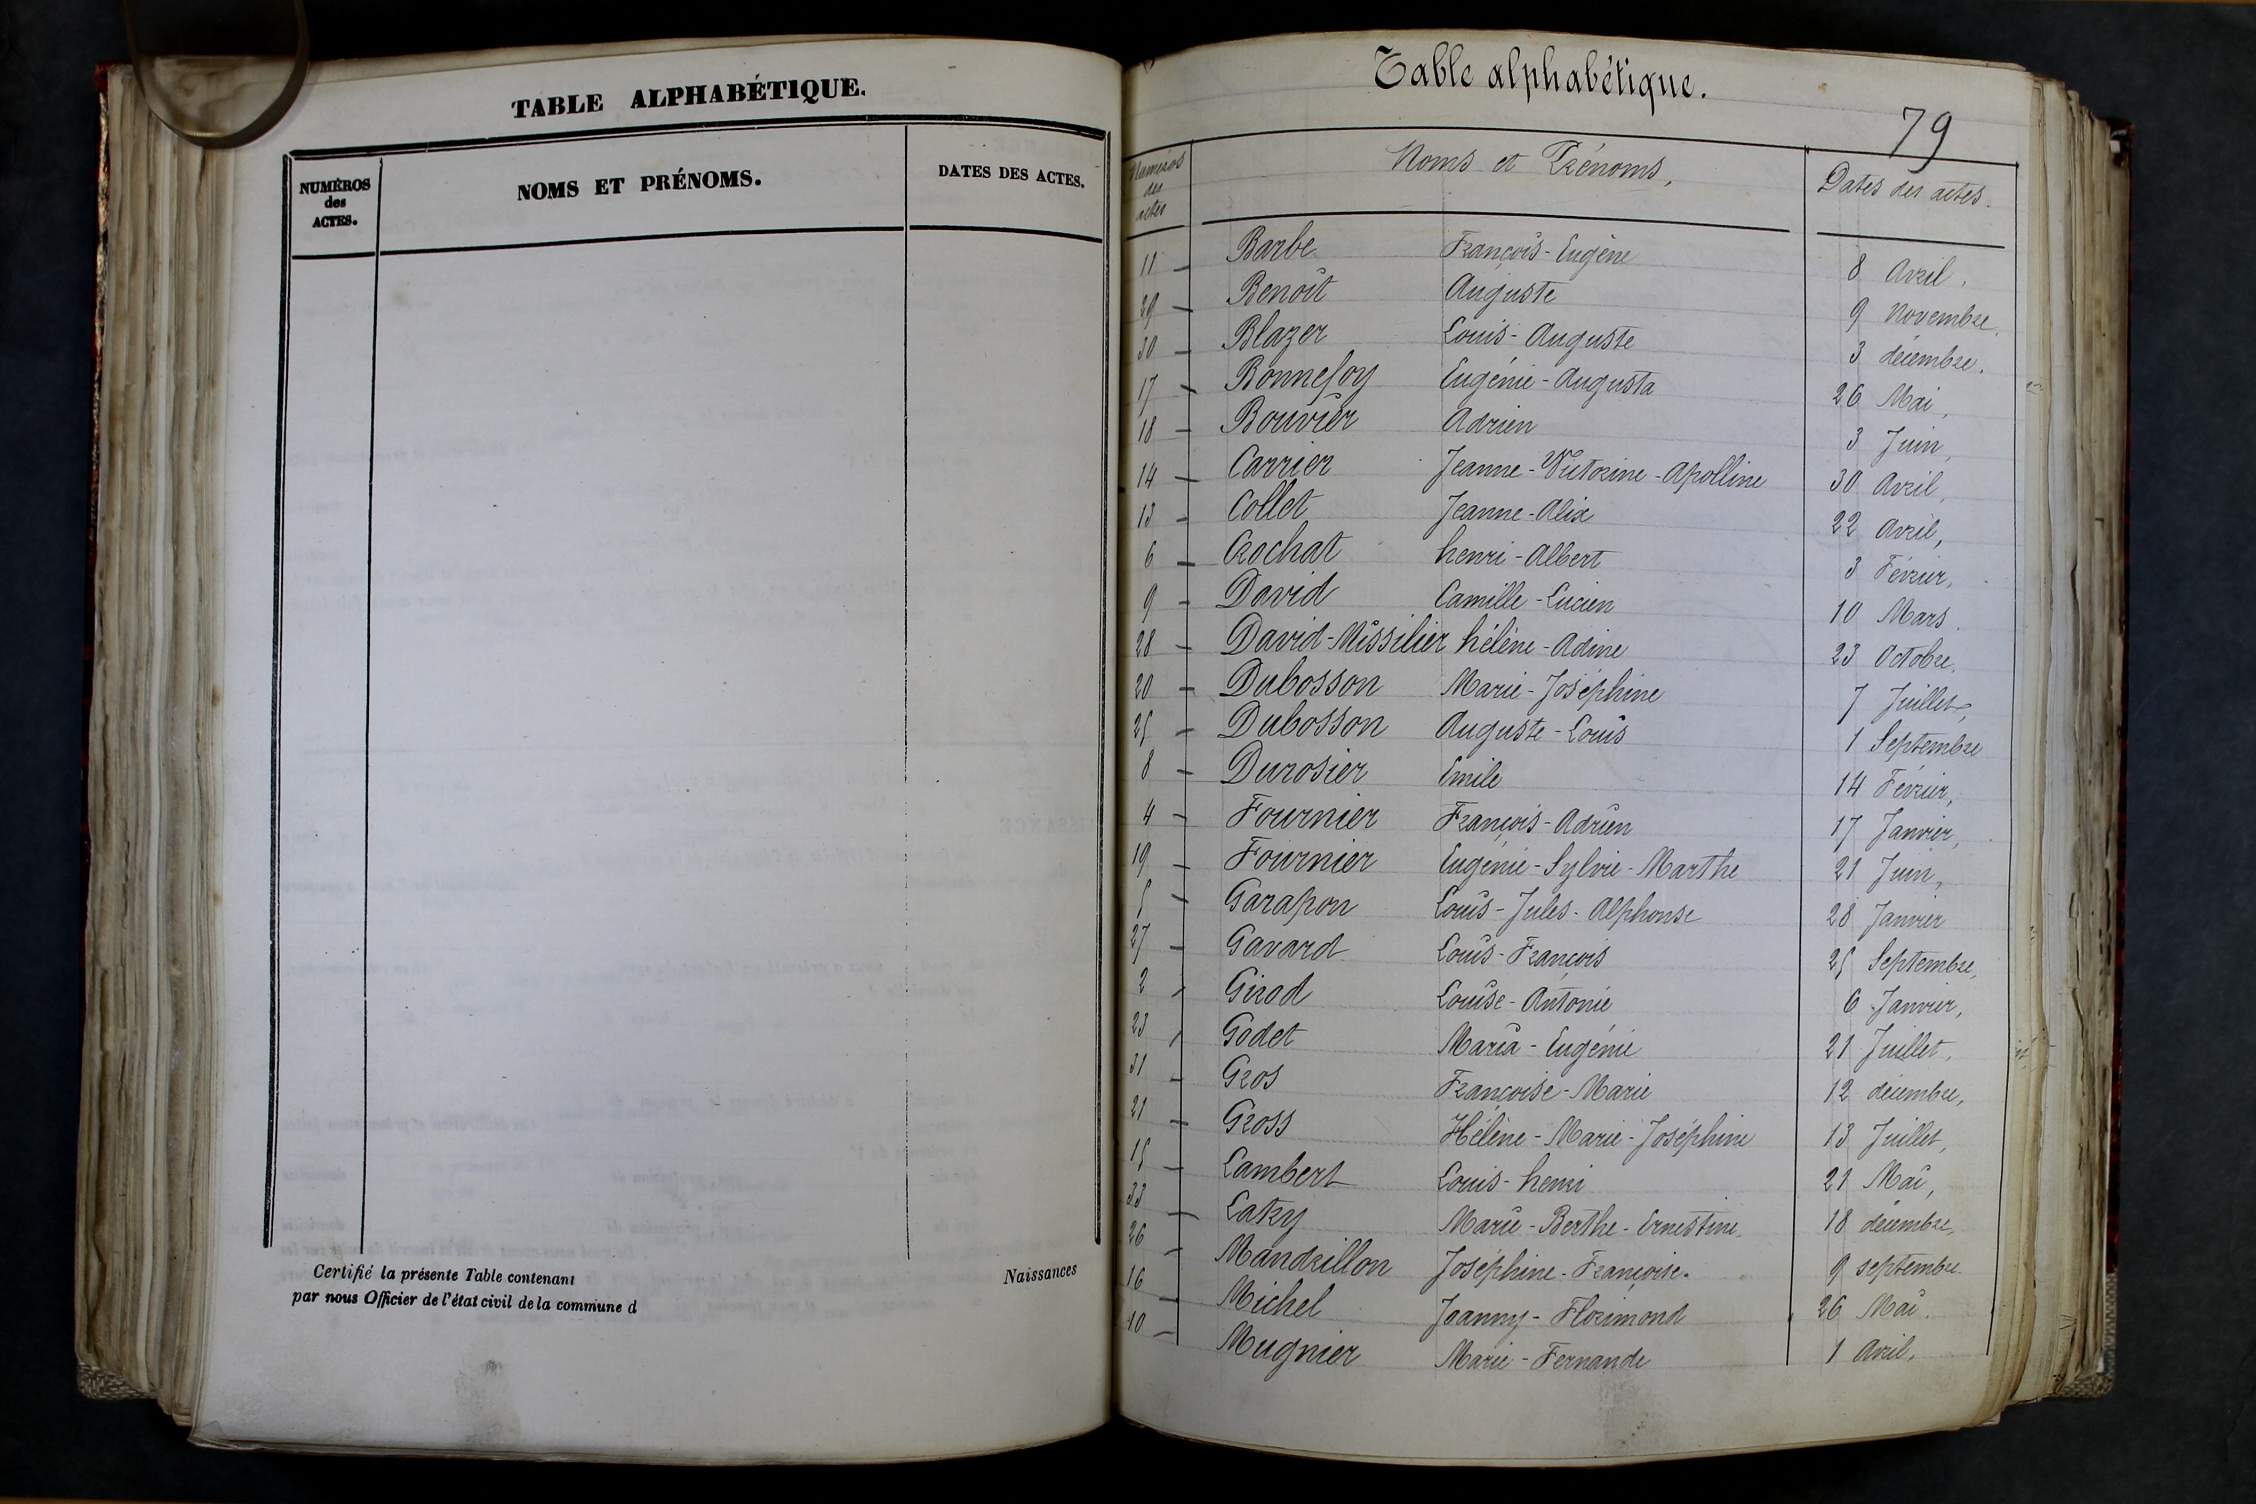 TABLE ALPHABÉTIQUE.
NUMÉROS des ACTES. NOMS ET PRÉNOMS. DATES DES ACTES.
Certifié la présente Table contenant Naissances
par nous Officier de l'état civil de la commune d
Table alphabétique.
79
Numéros des actes Noms et Prénoms, Dates des actes.
11 - Barbe François-Eugène 8 Avril,
29 - Benoît Auguste 9 Novembre,
30 - Blazer Louis-Auguste 3 décembre.
17 - Bonnefoy Eugénie-Augusta 26 Mai,
18 - Bouvier Adrien 3 Juin,
14 - Carrier Jeanne-Victorine-Apolline 30 Avril,
13 - Collet Jeanne-Alix 22 Avril,
6 - Crochat henri-Albert 3 Février,
9 - David Camille-Lucien 10 Mars.
28 - David-Missilier hélène-Adine 23 Octobre,
20 - Dubosson Marie-Joséphine 7 Juillet,
25 - Dubosson Auguste-Louis 1 Septembre
8 - Durosier Emile 14 Février,
4 - Fournier François-Adrien 17 Janvier,
19 - Fournier Eugénie-Sylvie-Marthe 21 Juin,
5 - Garapon Louis-Jules-Alphonse 28 Janvier
27 - Gavard Louis-François 25 Septembre,
2 - Girod Louise-Antonie 6 Janvier,
23 - Godet Maria-Eugénie 21 Juillet,
31 - Gros Françoise-Marie 12 décembre,
21 - Gross Hélène-Marie-Joséphine 13 Juillet,
15 - Lambert Louis-henri 21 Mai,
33 - Laky Marie-Berthe-Ernestine 18 décembre,
26 - Mandrillon Joséphine-Françoise. 9 septembre
16 - Michel Joanny-Florimond 26 Mai.
10 - Mugnier Marie-Fernande 1 Avril,